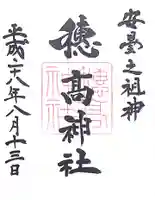 安曇之祖神
穂髙神社
平成二十八年八月十三日